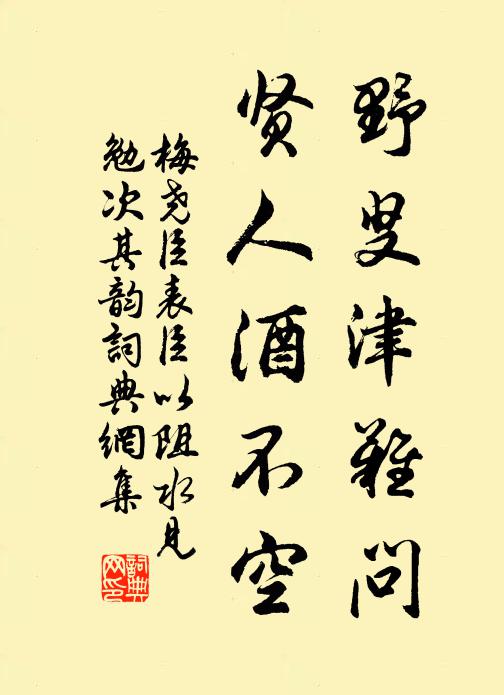 野叟津难问
贤人酒不空
梅尧臣表臣以阻水见
勉次其韵詞典網集
詞典
网印